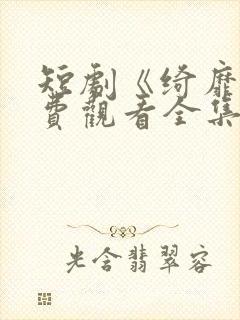 短劇《綺靡
費觀看全集
光含翡翠容